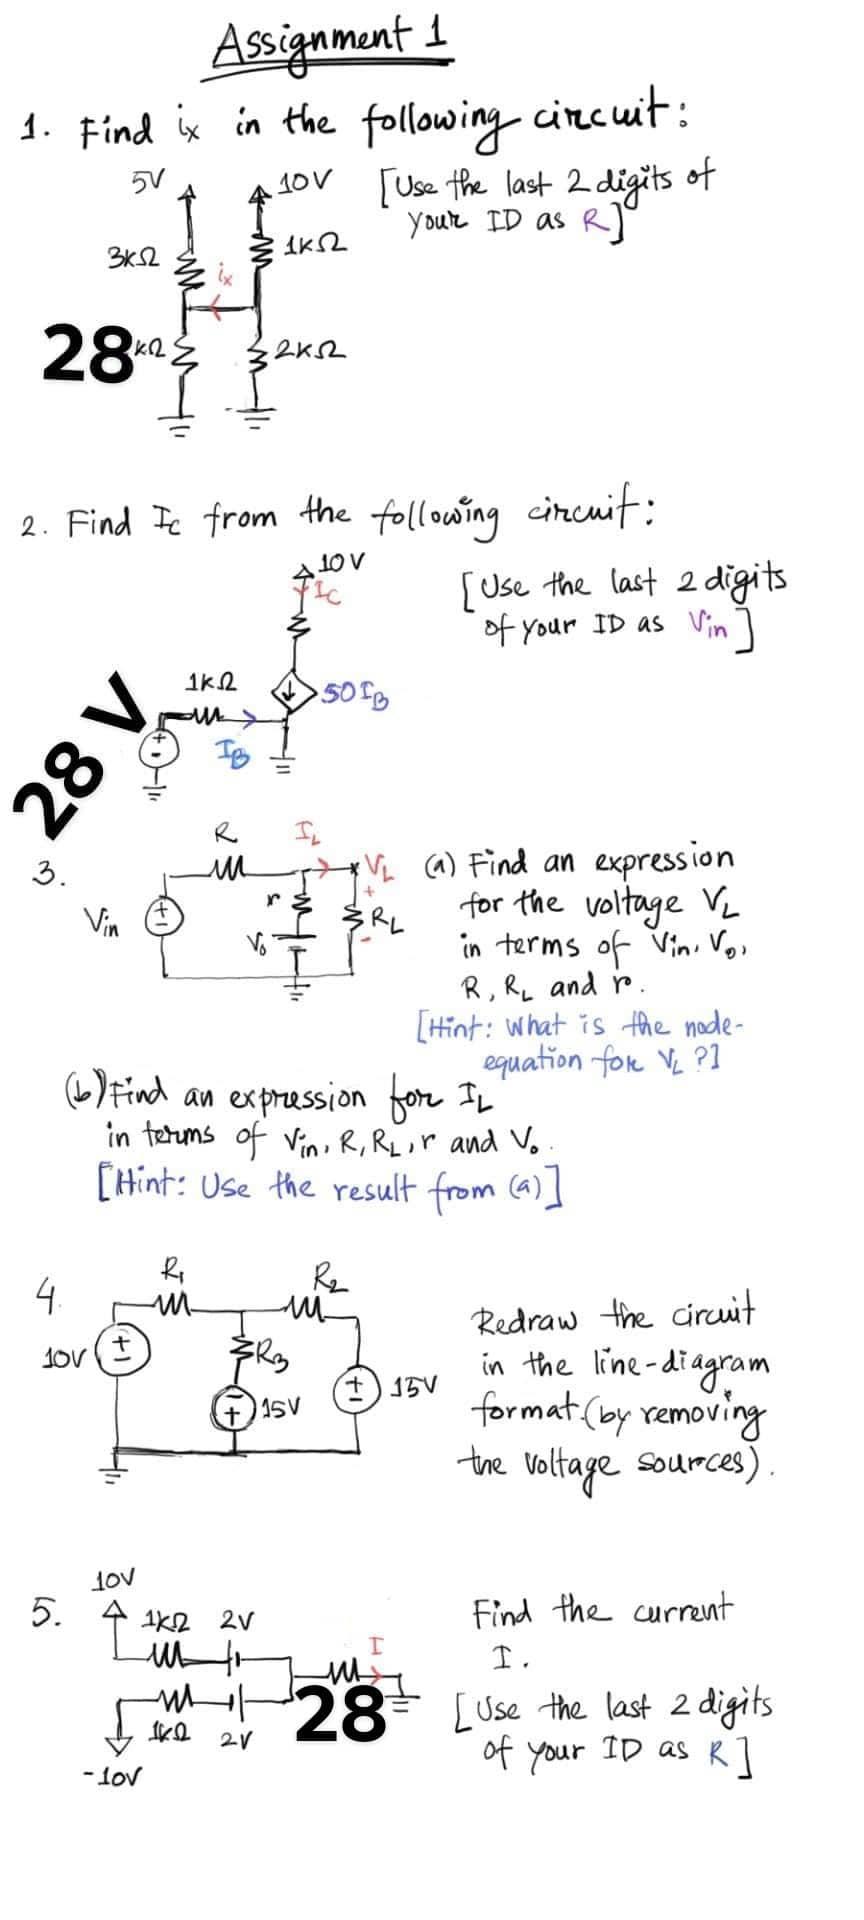 Assignment 1
1. Find ix in the following circuit:
5V
10V
[Use the last 2 digits of
your ID as R]
3kΩ
1kΩ
ix
28 kΩ
2kΩ
2. Find Ic from the following circuit:
10V
Ic
[Use the last 2 digits
of your ID as Vin]
1kΩ
50IB
28 V
+
-
IB
3.
R
IL
VL
Vin
+
-
r
V₀
+
RL
-
(a) Find an expression
for the voltage VL
in terms of Vin, V₀,
R, RL and r.
[Hint: What is the node-
equation for VL ?]
(b) Find an expression for IL
in terms of Vin, R, RL, r and V₀.
[Hint: Use the result from (a)]
4.
R₁
R₂
10V
+
-
R₃
-
+
15V
+
-
15V
Redraw the circuit
in the line-diagram
format (by removing
the voltage sources).
5.
10V
1kΩ 2V
I
28
1kΩ 2V
-10V
Find the current
I.
[Use the last 2 digits
of your ID as R]